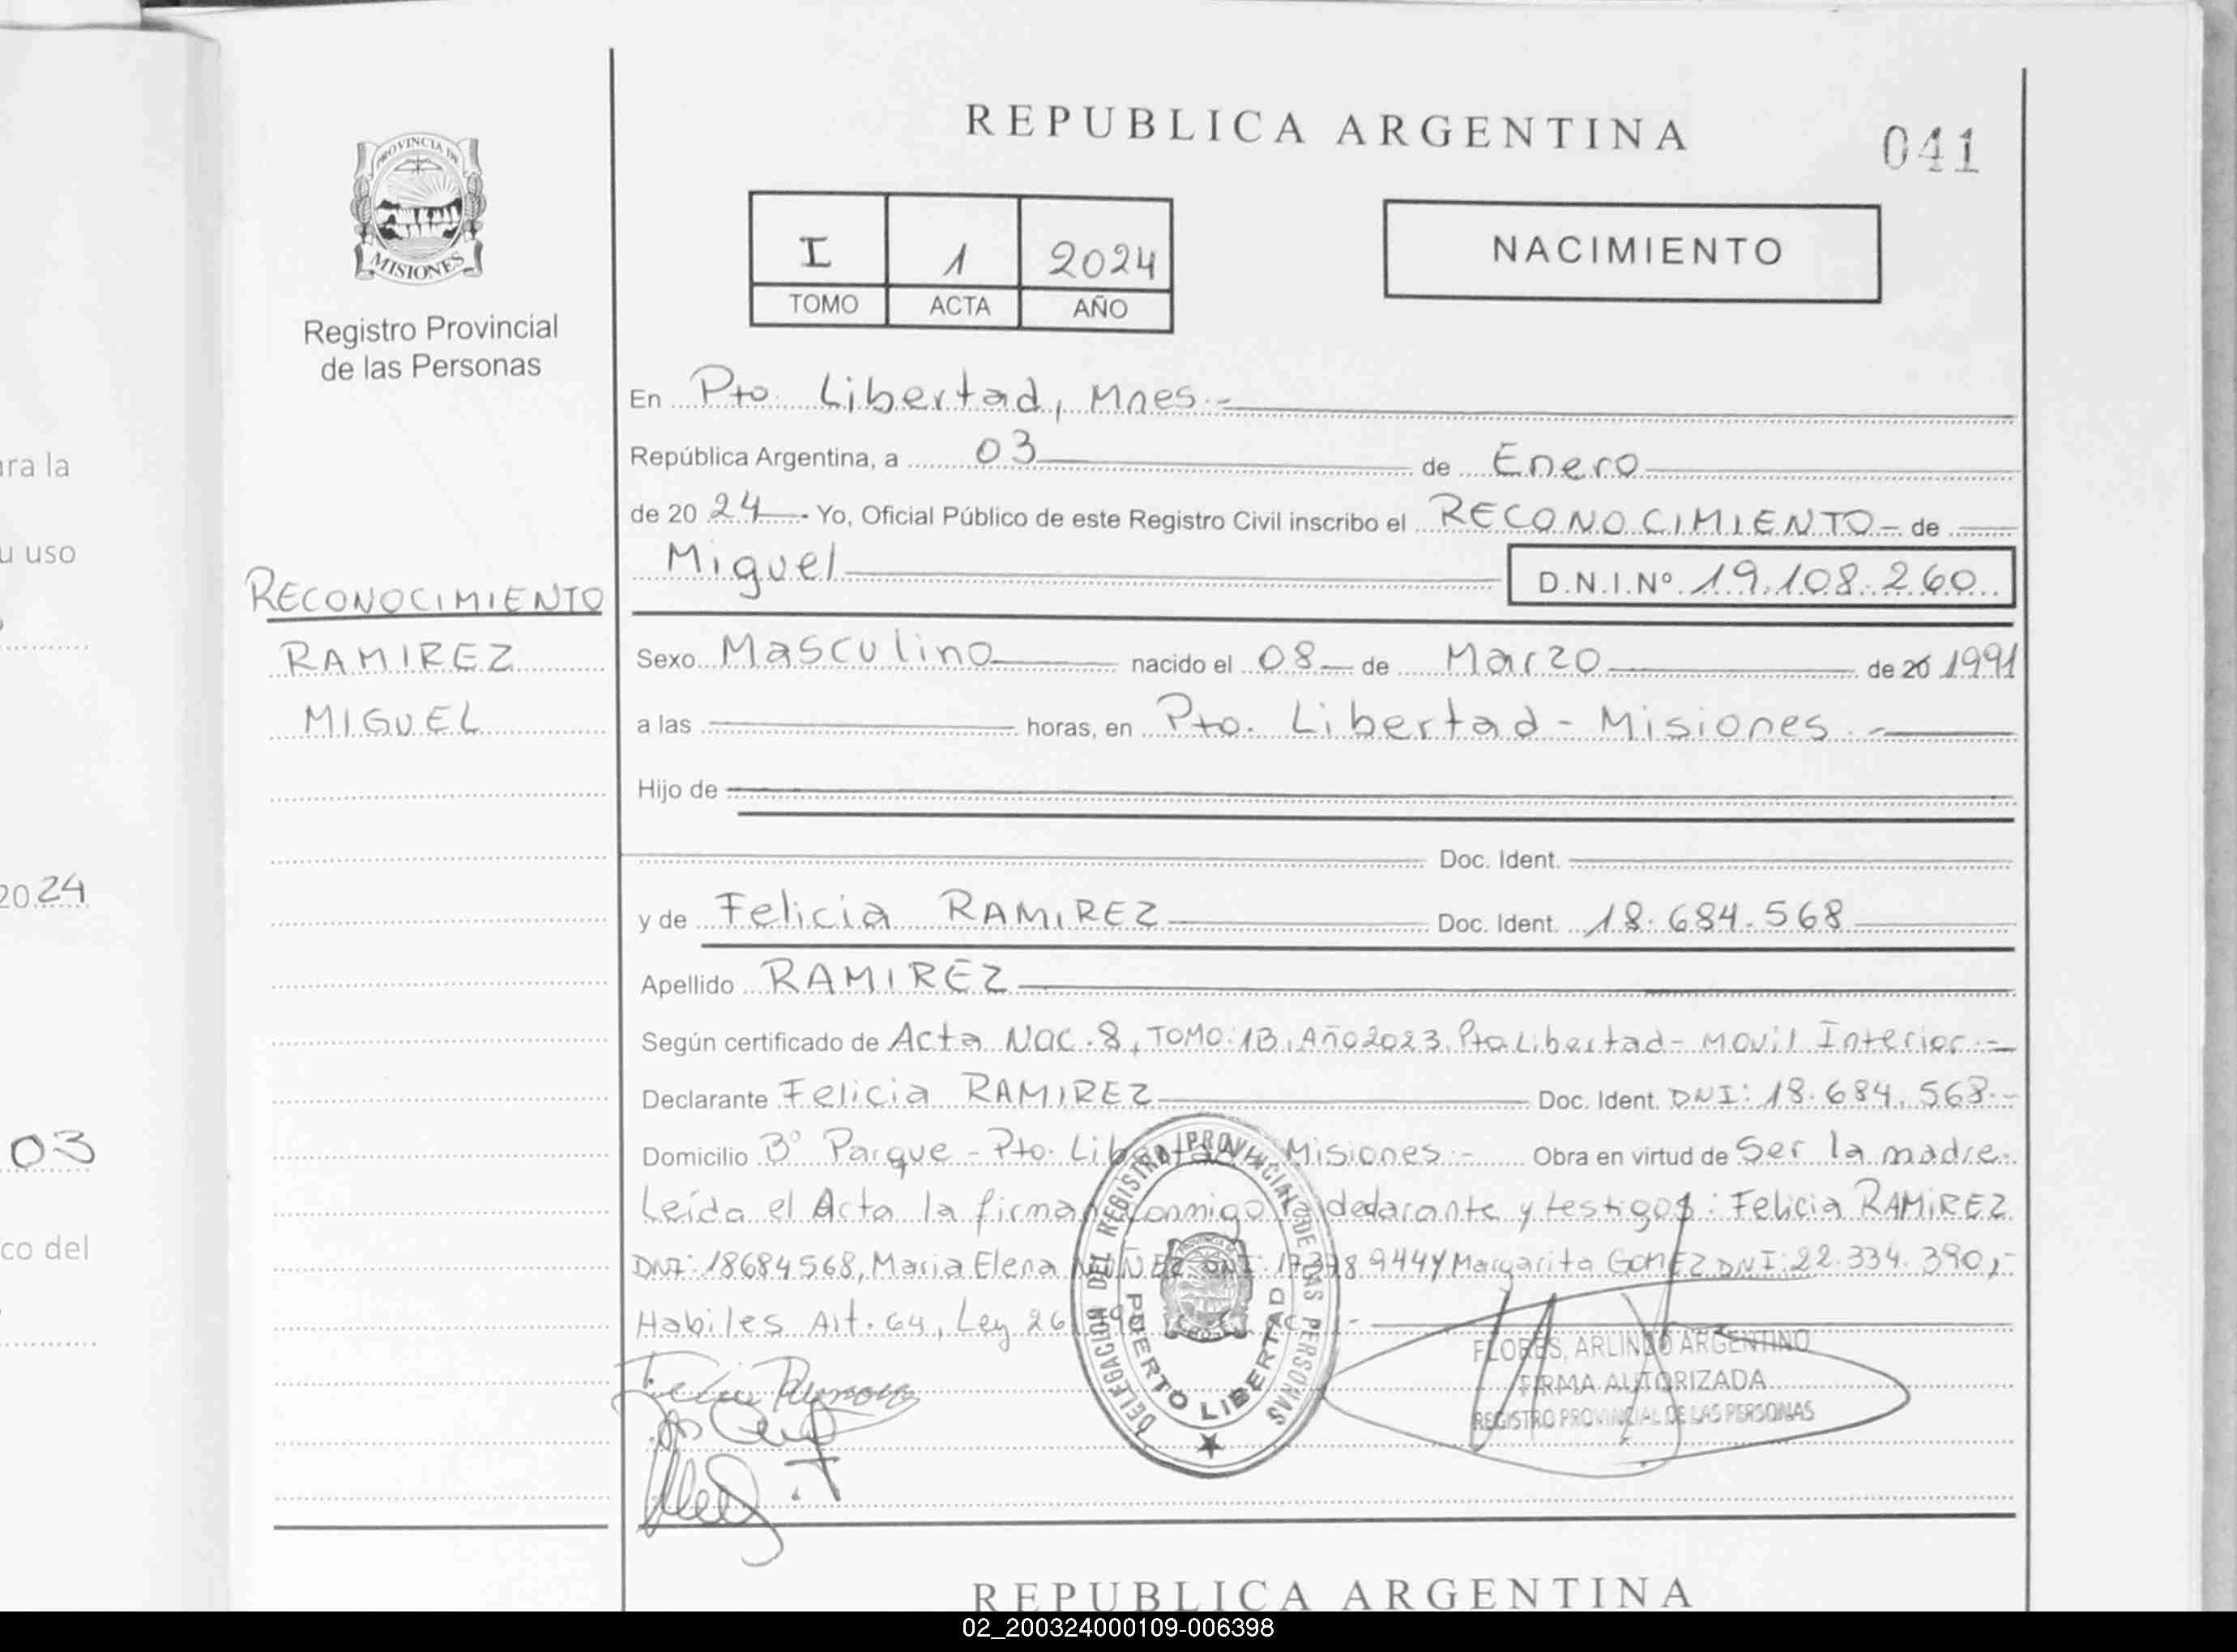 REPUBLICA ARGENTINA
041
PROVINCIA DE
MISIONES
Registro Provincial
de las Personas
I 1 2024
TOMO ACTA AÑO
NACIMIENTO
En Pto. Libertad, Mnes.-
República Argentina, a 03 de Enero
de 20 24 - Yo, Oficial Público de este Registro Civil inscribo el RECONOCIMIENTO - de
Miguel D.N.I.Nº 19.108.260
RECONOCIMIENTO
RAMIREZ
MIGUEL
Sexo Masculino nacido el 08 de Marzo de 20 1991
a las horas, en Pto. Libertad - Misiones.-
Hijo de
Doc. Ident.
y de Felicia RAMIREZ Doc. Ident. 18.684.568
Apellido RAMIREZ
Según certificado de Acta Nac. 8, TOMO: 1B, Año 2023, Pto Libertad - Movil Interior.-
Declarante Felicia RAMIREZ Doc. Ident. DNI: 18.684.568.-
Domicilio Bº Parque - Pto. Libertad Misiones.- Obra en virtud de Ser la madre.
Leída el Acta la firma conmigo declarante y testigos: Felicia RAMIREZ
DNI: 18684568, Maria Elena 944 y Margarita GOMEZ DNI: 22.334.390,-
Habiles Art. 64, Ley 26
DELEGACION DEL REGISTRO PROVINCIAL DE LAS PERSONAS
PUERTO LIBERTAD
FLORES, ARLINDO ARGENTINO
FIRMA AUTORIZADA
REGISTRO PROVINCIAL DE LAS PERSONAS
REPUBLICA ARGENTINA
ra la
u uso
2024
03
co del
02_200324000109-006398